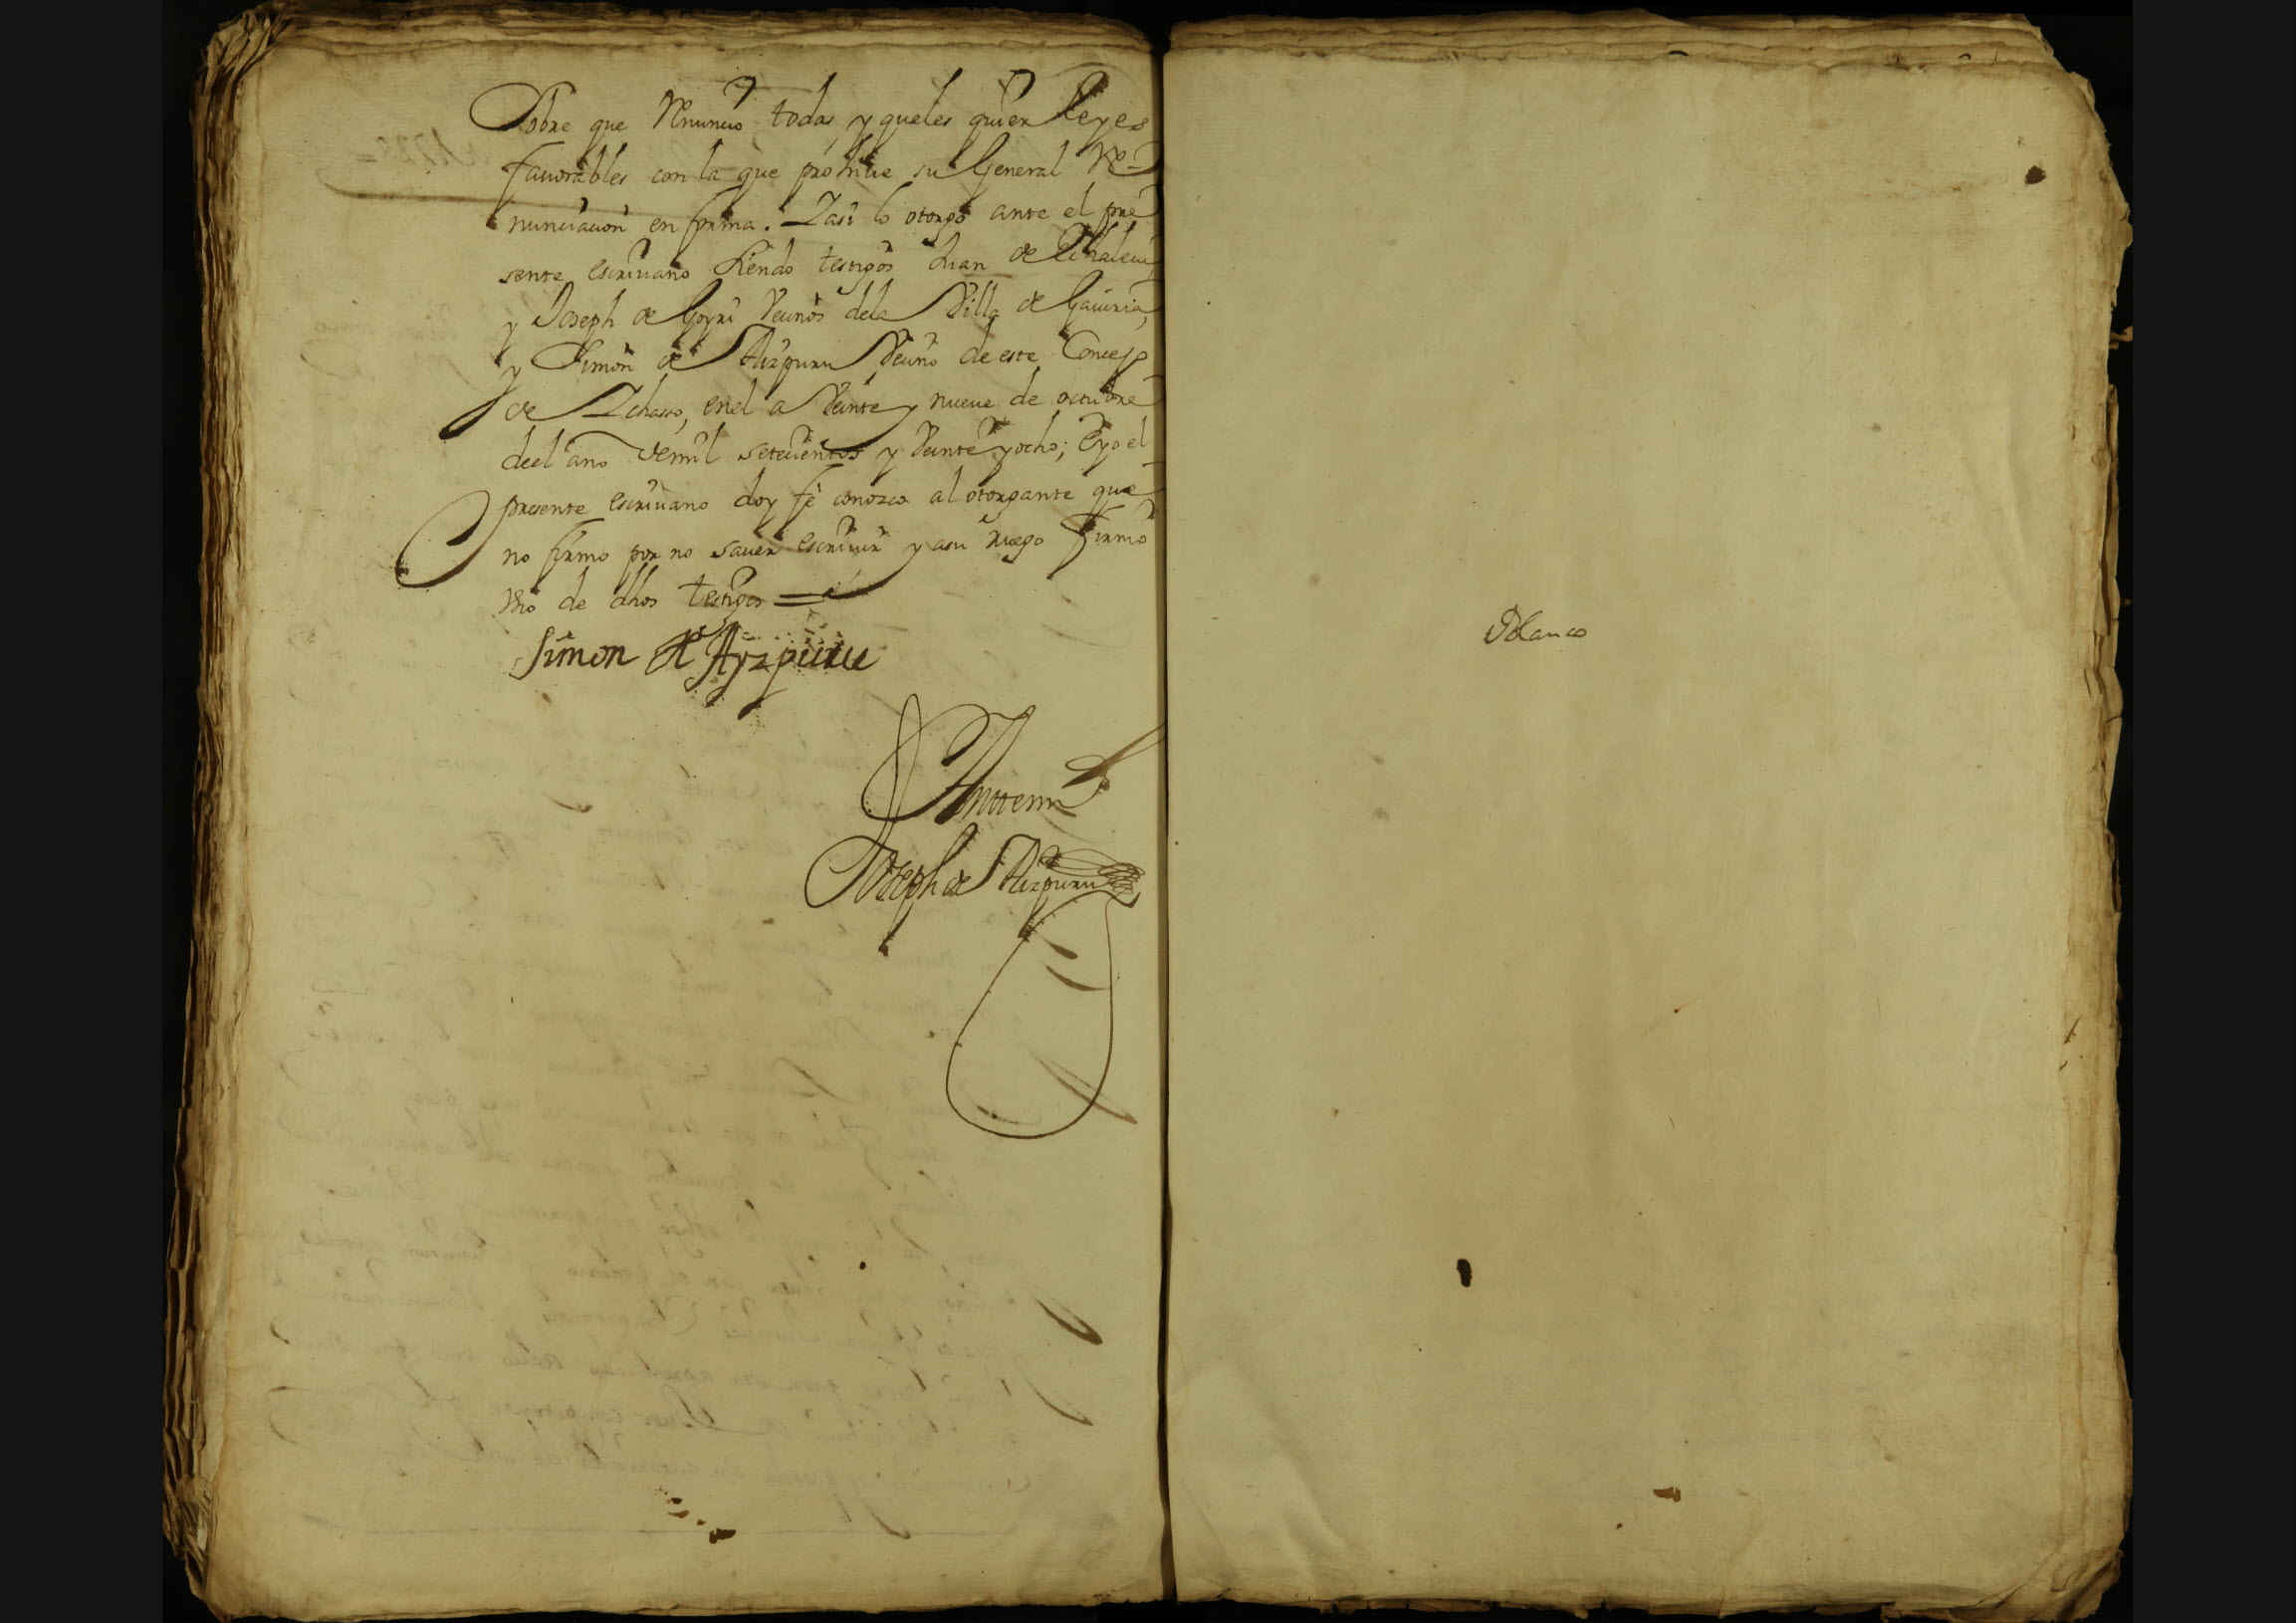 Sobre que Renuncio todas y queles quier Leyes
fauorables con la que prohive su General Re-
nunciacion en forma. Y asi lo otorgo ante el pre
sente escriuano siendo testigos Juan de
y Joseph de Goyri Vecinos dela Villa de Gauiria,
y Simon de Aizpuru Vecino de este Concejo
de Ychasso, enel a Veinte y nueue de octubre
deel año demil setecientos y Veinte y ocho; E yo el
presente escriuano doy fé conozco al otorgante que
no firmo por no sauer escriuir y asu ruego firmó
Vno de dhos testigos =
Simon de Ayzpuru
Antemi
Joseph de Aizpuru
Blanco